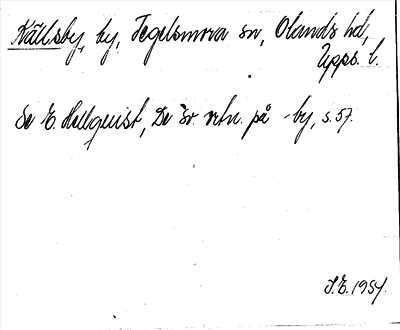 Källsby, by, Tegelsmora sn, Olands hd,
Upps. l.
Se E. Hellquist, De sv. ortn. på -by, s. 57.
S.E. 1954.